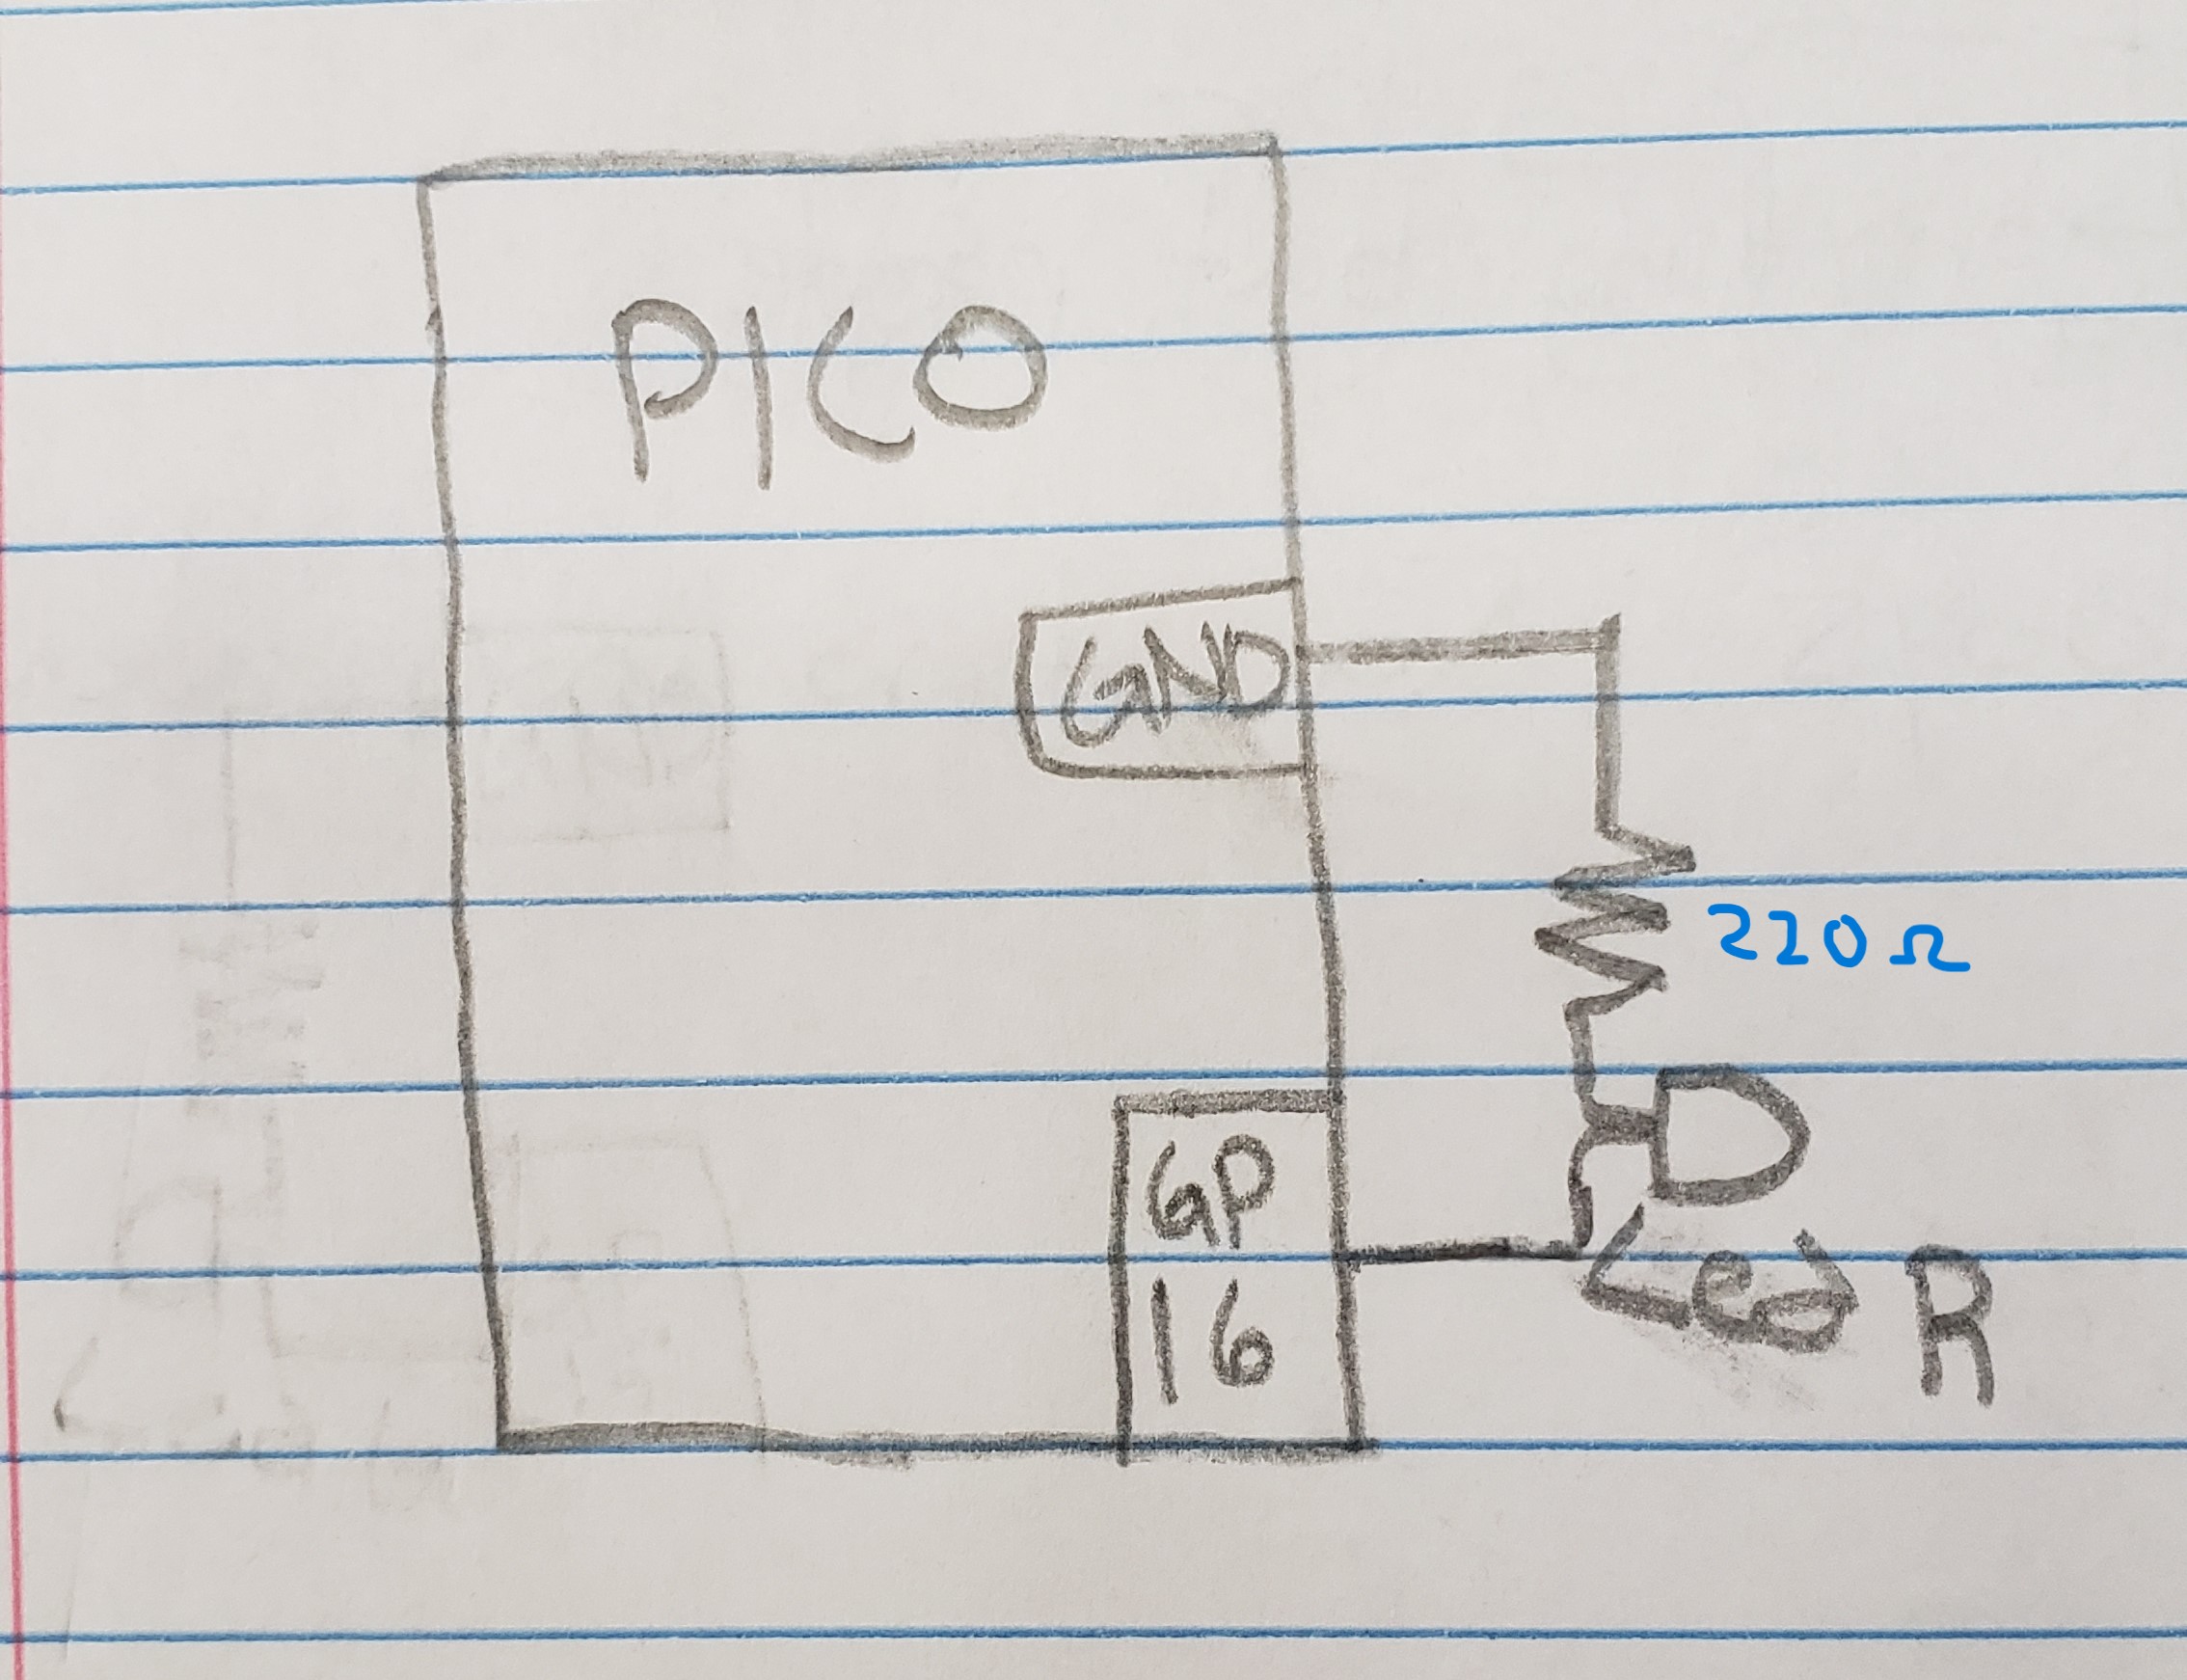 PICO
GND
220Ω
GP
16
Led R